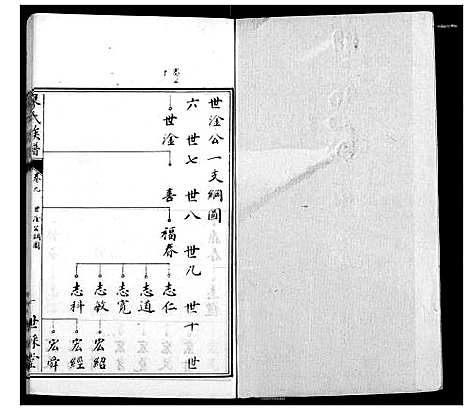 世淦公一支綱圖
六世 七世 八世 九世 十世
世淦
喜
福春
志仁
志道
志寬
志敏
志科
宏紹
宏經
宏舜
氏族譜
卷九
世淦公綱圖
一
世保堂